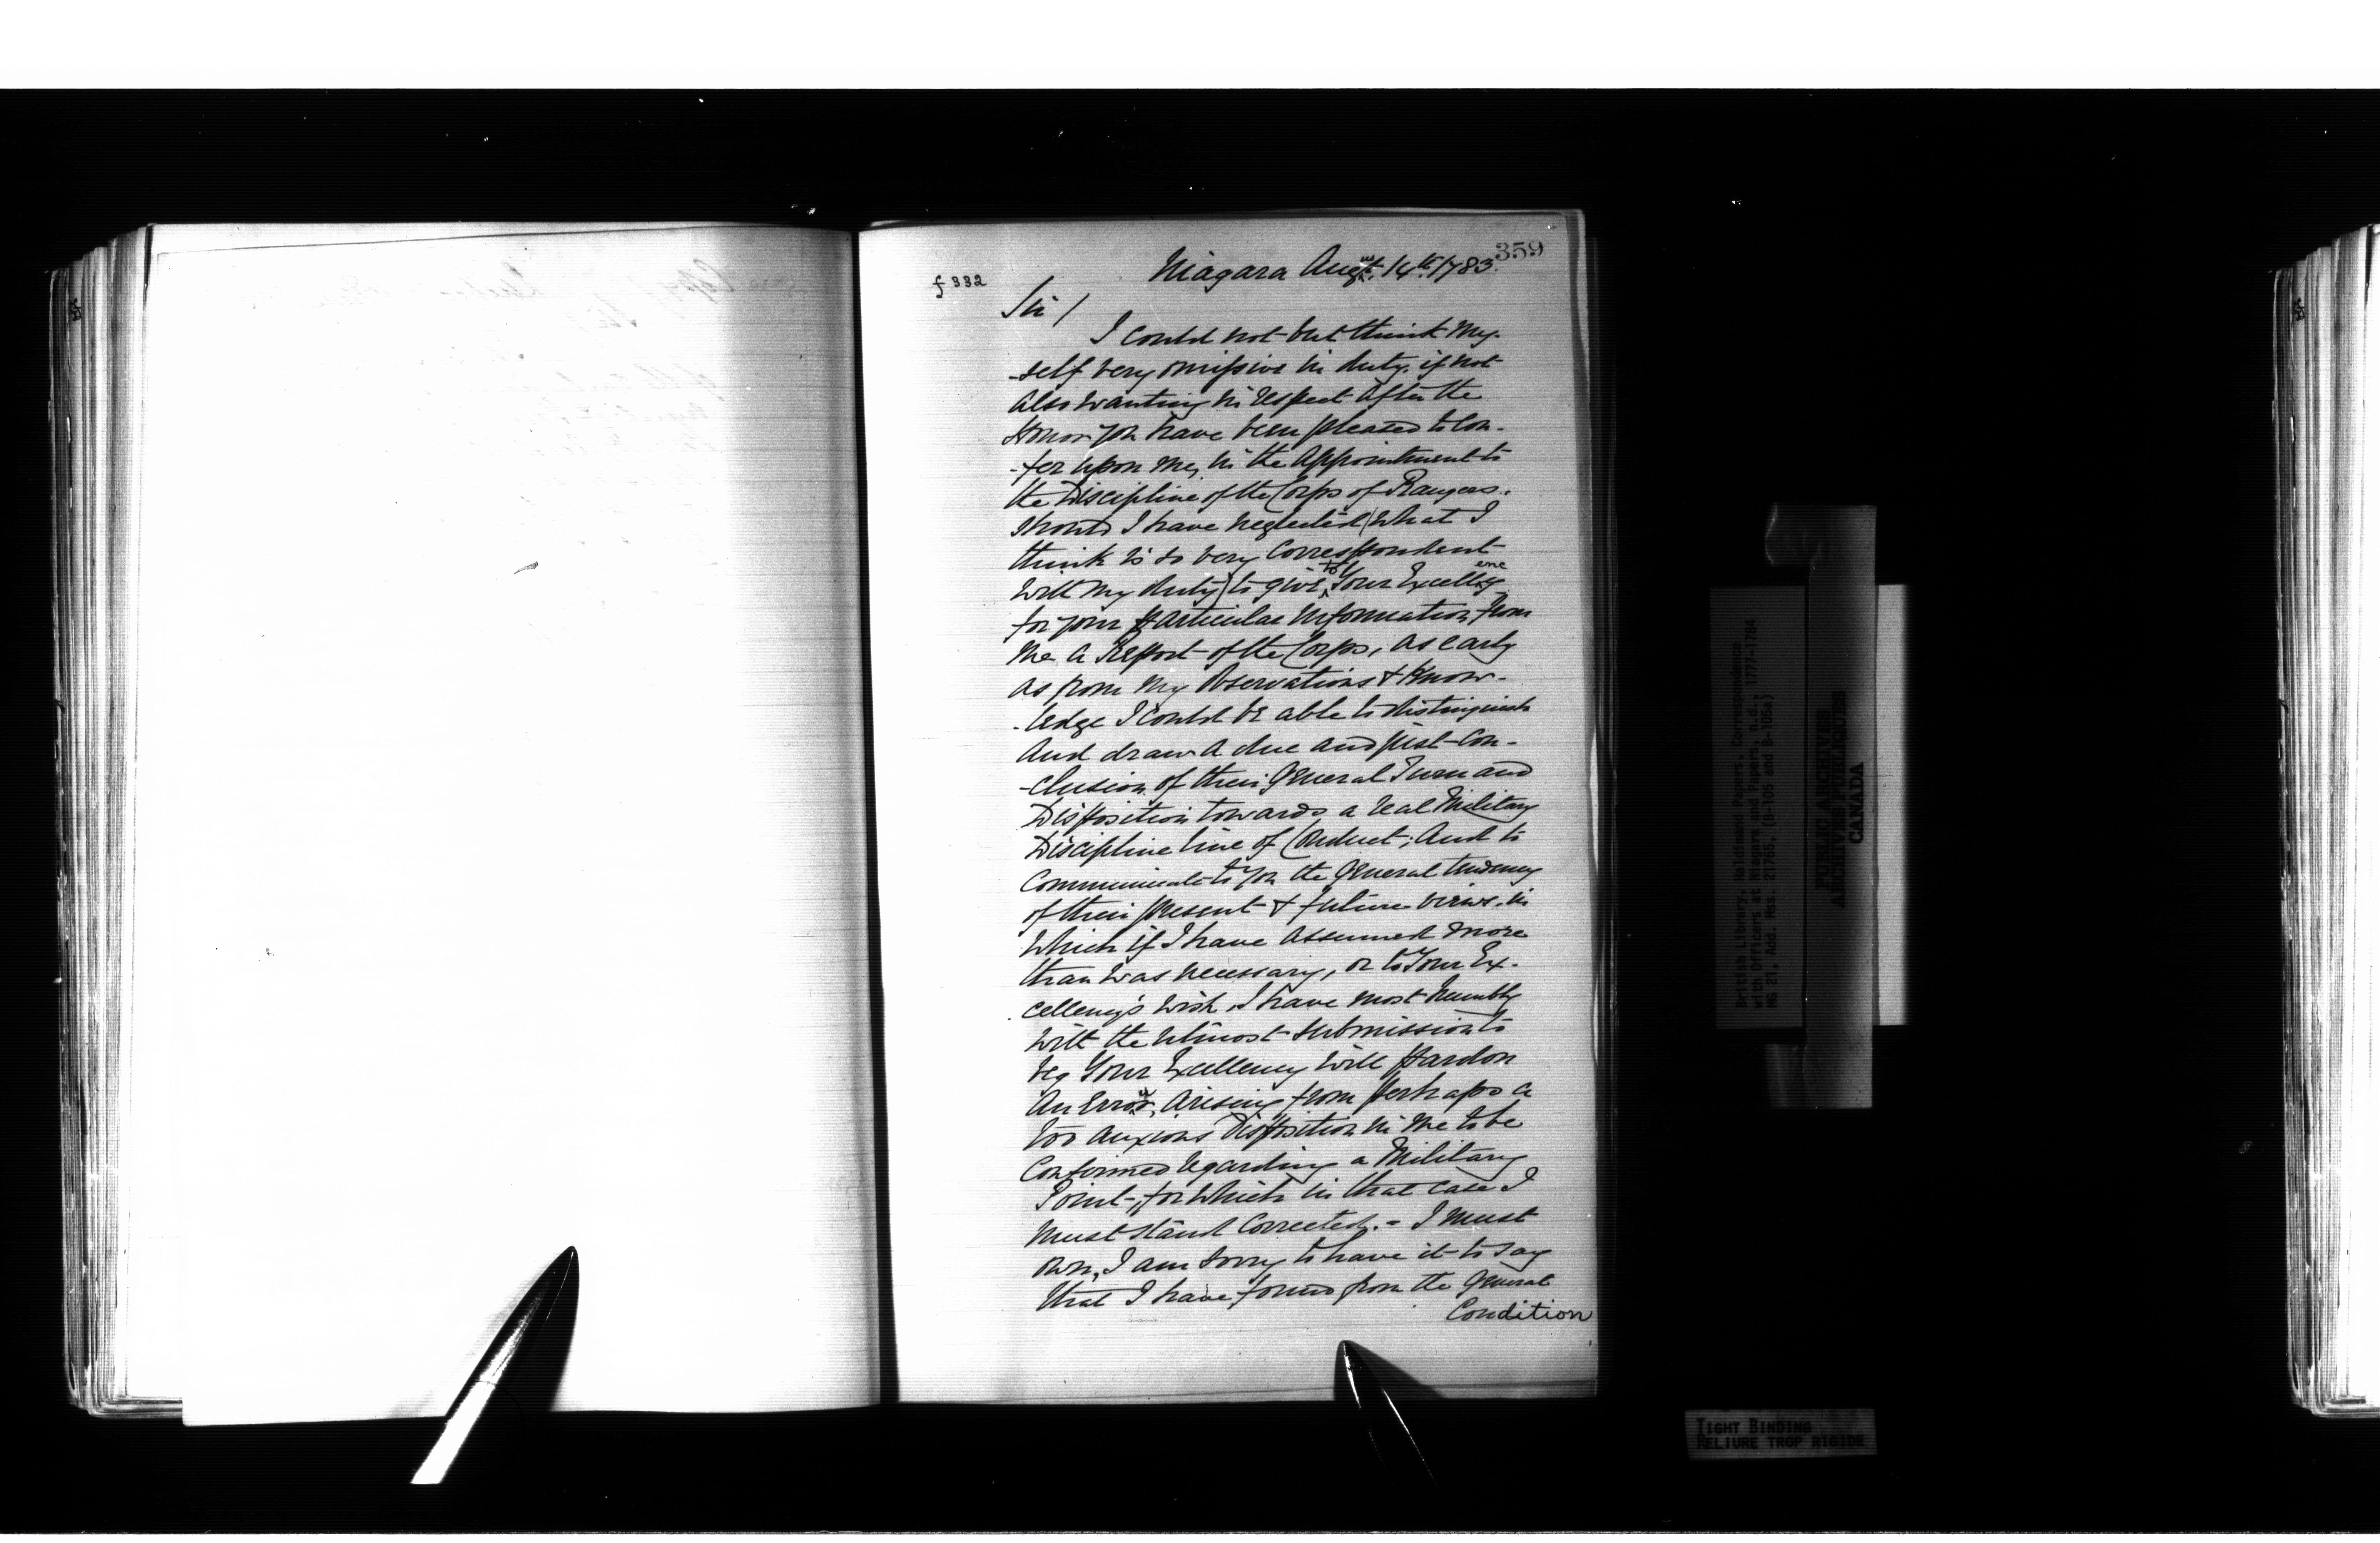 359
f 332
Niagara Augst. 14th. 1783.
Sir /
I could not but think My-
-self very omissive in duty, if not
also wanting in respect after the
Honor you have been pleased to Con-
-fer upon me, in the Appointment to
the Discipline of the Corps of Rangers.
should I have neglected (what I
think is so very Correspondent
with my duty) to give to Your Excellency
for your particular Information from
me a Report of the Corps, as early
as from My Observations & Know-
-ledge I could be able to distinguish
And draw a due and just Con-
-clusion of their General Turn and
Disposition towards a real Military
Discipline line of Conduct; And to
Communicate to you the General tendency
of their present & future views. in
Which if I have assumed more
than was necessary, or to Your Ex-
cellency's wish, I have most humbly
with the utmost submission to
beg Your Excellency will pardon
An Error, Arising from perhaps a
too anxious Disposition in Me to be
Conformed regarding a Military
Point, for which in that case I
must stand Corrected. - I must
own, I am sorry to have it to say
that I have found from the General
Condition
British Library, Haldimand Papers, Correspondence
with Officers at Niagara and Papers, n.d., 1777-1784
MG 21, Add. Mss. 21765, (B-105 and B-105a)
PUBLIC ARCHIVES
ARCHIVES PUBLIQUES
CANADA
TIGHT BINDING
RELIURE TROP RIGIDE